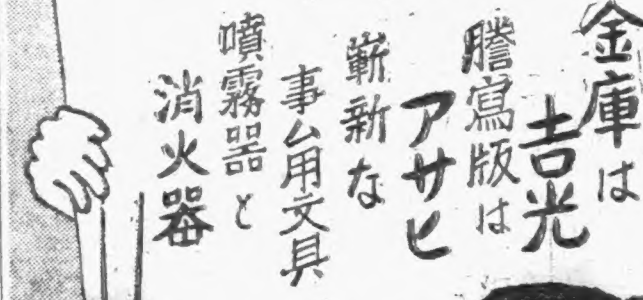 金庫は
吉光
謄寫版は
アサヒ
嶄新な
事ム用文具
噴霧器と
消火器